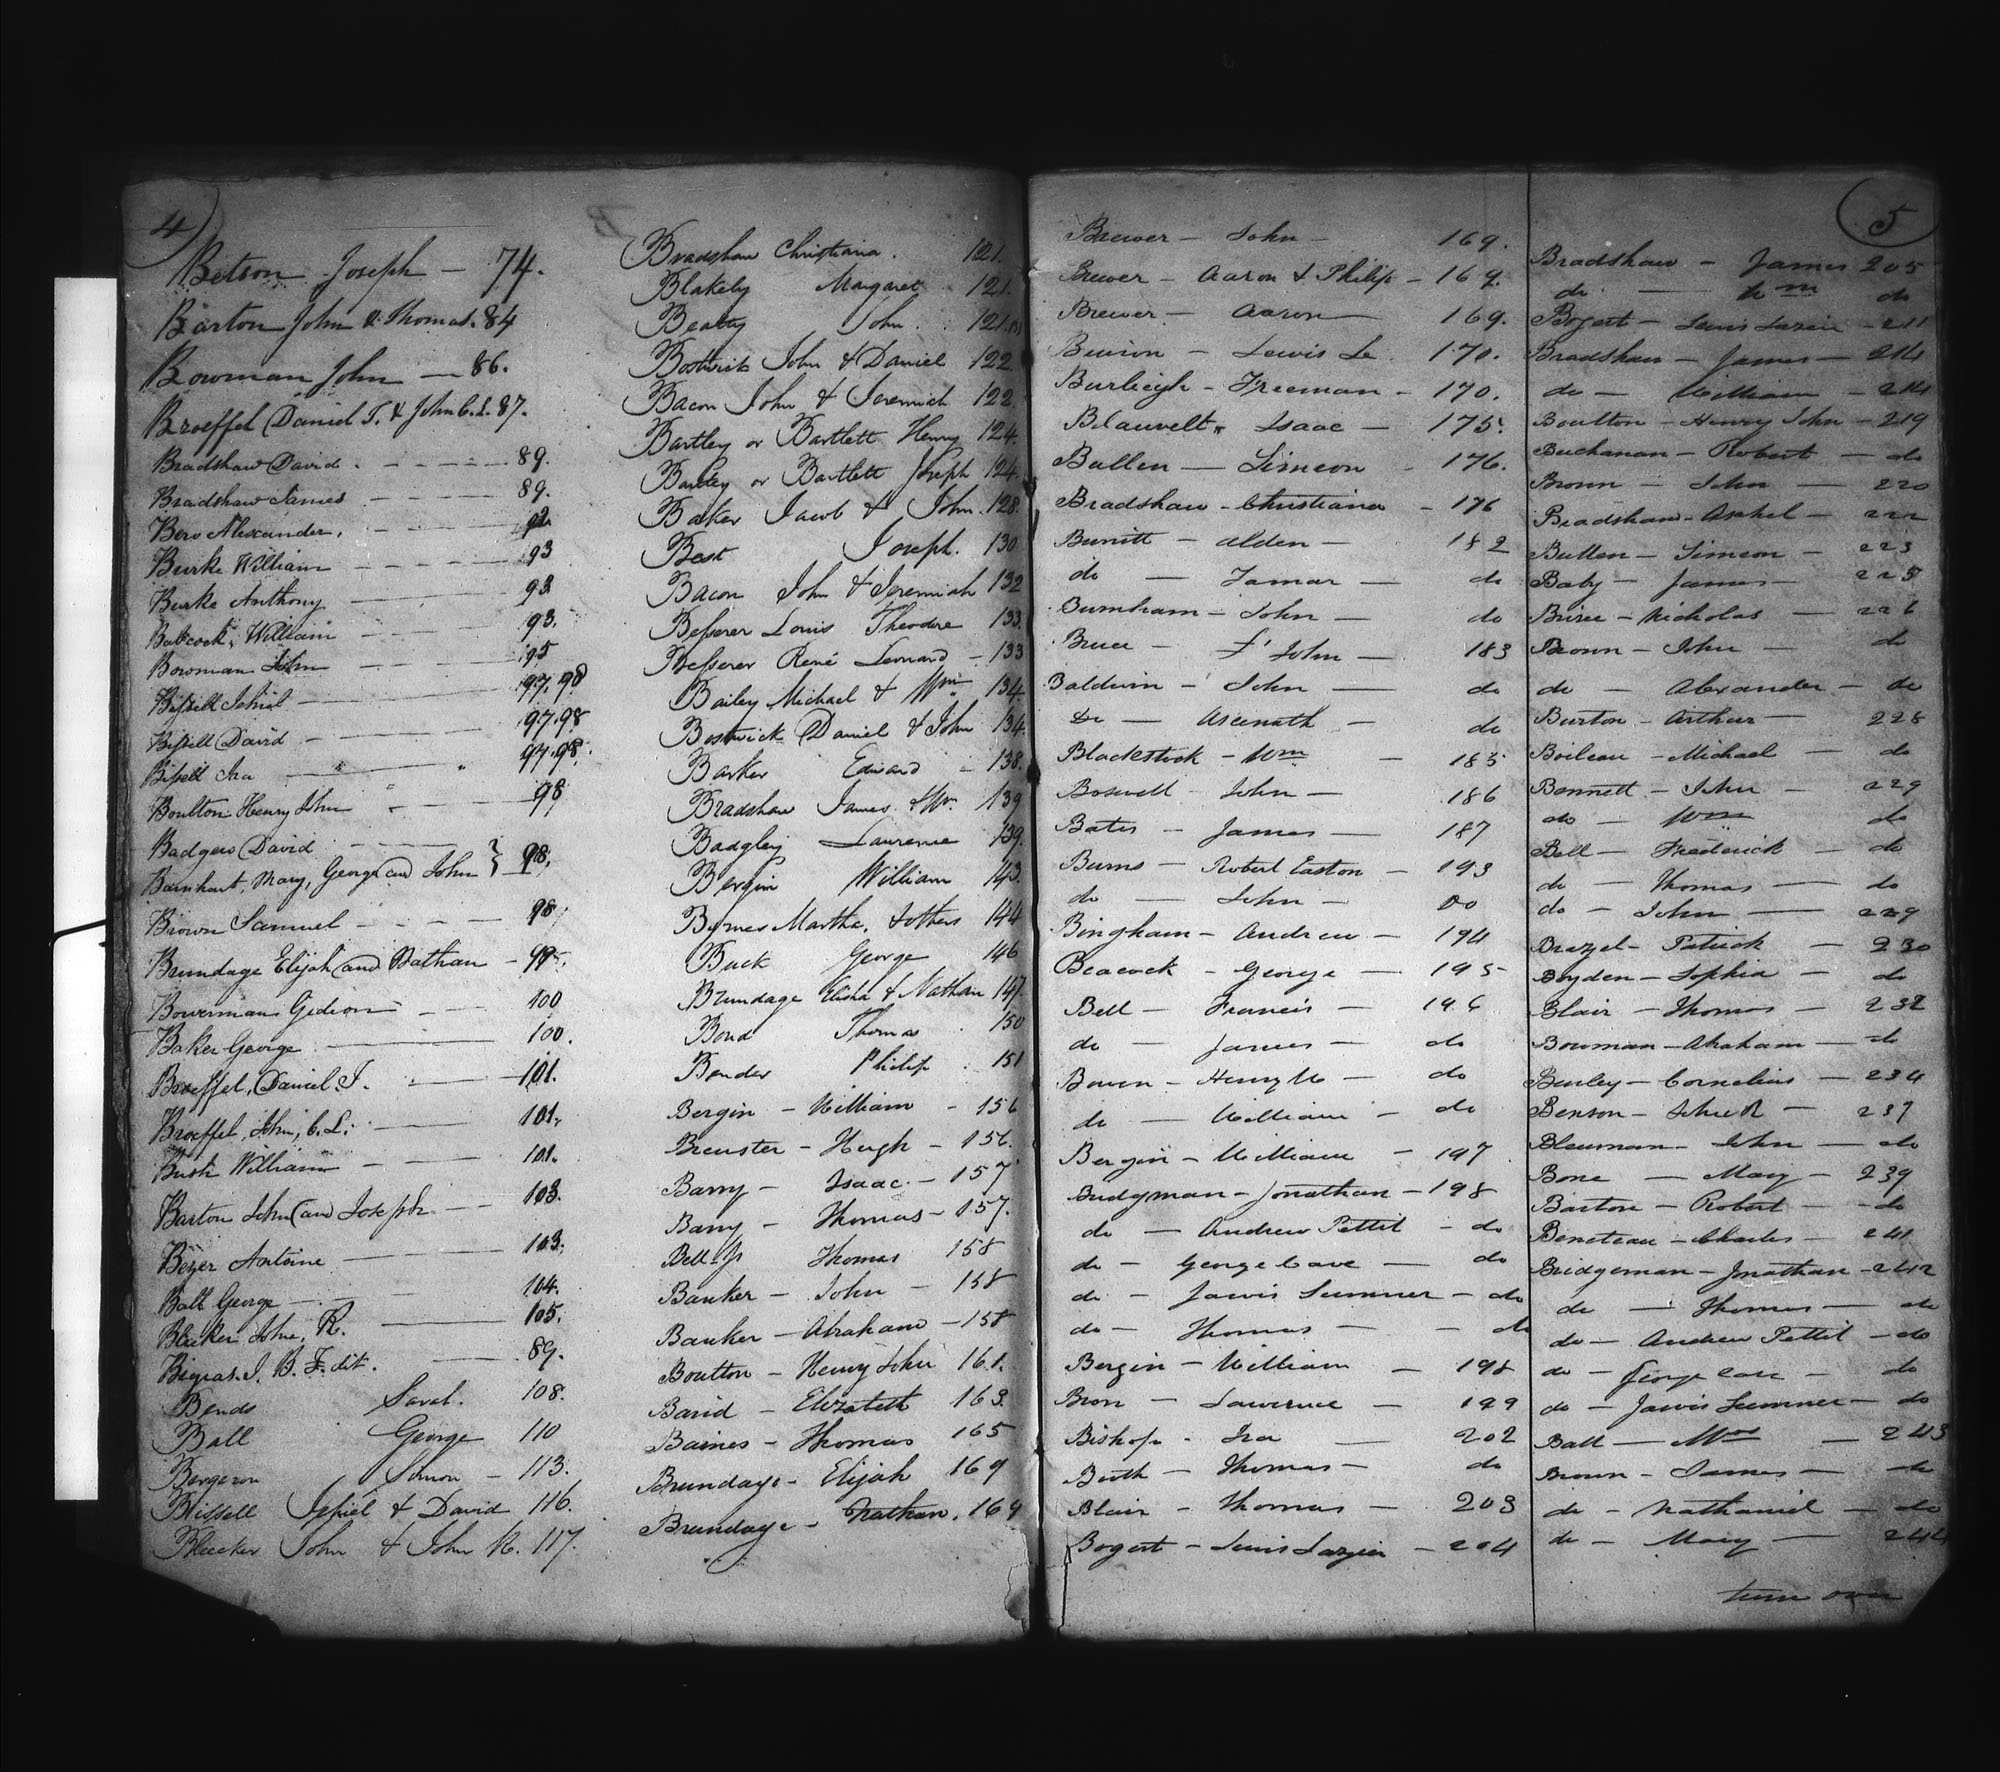 4
Betson Joseph — 74.
Barton John & Thomas. 84
Bowman John — 86.
Broeffel Daniel T. & John C. L. 87.
Bradshaw David . - - - - 89.
Bradshaw James - - - - 89.
Bero Alexander, - - 92
Burke William - - - - 93
Burke Anthony — - — 93
Babcock, William - - - 93.
Bowman John — - — 95
Bissell — 97.98
Bissell David - — 97.98
Bissell Ira — 97.98.
Boulton Henry John - - — 98
Badgero David - — 98.
Barnhart, Mary, George and John
Brown Samuel - - - — 98
Brundage Elijah and Nathan -
Bowerman Gideon - - — 100
Baker George — 100.
Broeffel, Daniel T. - — 101.
Broeffel, John, C. L. — 101.
Bush William - — 101.
Barton John and Joseph - - 103.
Bezer Antoine — 103.
Ball George — 104.
Bleeker John, R. — 105.
Bigras J. B. F. dit. — 89.
Bends Sarah. 108.
Ball George 110
Bergeron Simon - 113.
Blissell & David 116.
Bleecker John & John R. 117.
Bradshaw Christiana. 121.
Blakely Margaret 121.
Beatty John. 121.
Bostwick John & Daniel 122
Bacon John & Jeremiah 122
Bartley or Bartlett Henry 124.
Bartley or Bartlett Joseph 124
Baker Jacob & John. 128.
Best Joseph. 130
Bacon John & Jeremiah 132
Besserer Louis Theodore 133.
Besserer René Leonard - 133
Bailey Michael & Wm 134.
Bostwick Daniel & John 134.
Barker Edward - 138.
Bradshaw James & Wm. 139
Badgley Laurence 139.
Bergin William 143.
Byrnes Martha, & others 144
Buck George 146
Brundage Elisha & Nathan 147.
Bond Thomas 150
Bender Philip. 151
Bergin - William - 156
Brewster - Hugh - 156.
Barry - Isaac. - 157
Barry - Thomas - 157.
Bell Jr Thomas 158
Banker - John - 158
Banker - Abraham - 158
Boulton - Henry John 161.
Barid - Elizabeth 163.
Baines - Thomas 165
Brundage - Elijah 169
Brundage - Nathan. 169
Brewer - John - 169.
Brewer - Aaron & Philip - 169.
Brewer - Aaron — 169.
- Lewis Le 170.
Burleigh - Freeman - 170.
Blauvelt - Isaac - 175.
Bullen — Simeon - 176.
Bradshaw - Christiana - 176
Burritt - Alden - 182
do — Tamar — do
Burnham - John — do
Bruce - John — 183
Baldwin - John — do
do — Asenath — do
Blackstock - Wm — 185
Boswell - John — 186
Bates - James — 187
Burns - Robert Easton - 193
do — John - do
Bingham - Andrew - 194
Beacock - George — 195
Bell - Francis — 196
do — James — do
Bowen - Henry — do
do — William — do
Bergin - William — 197
Bridgman - Jonathan - 198
do — Andrew Pettit - do
do - George Cave — do
do - Jarvis Sumner - do
do - Thomas — - do
Bergin - William - 198
Bron - Lawrence - 199
Bishop - Ira — 202
Booth - Thomas - do
Blair - Thomas — 203
Bogert - Lewis Lazier - 204
5
Bradshaw - James 205
do — Wm do
Bogert - Lewis Lazier - 211
Bradshaw - James - 214
do — William - 214
Boulton - Henry John - 219
Buchanan - Robert — do
Brown — John — 220
Bradshaw - Asahel - 222
Bullen - Simeon - 223
Baby - James - 225
Brisee - Nicholas — 226
Brown - John — do
do — Alexander - do
Burton - Arthur — 228
Boileau - Michael — do
Bennett - John - 229
do — Wm do
Bell - Frederick - do
do — Thomas — do
do - John — 229
Brazel - Patrick — 230
Boyden - Sophia - do
Blair - Thomas - 232
Bowman - Abraham - do
Burley - Cornelius - 234
Benson - — 237
Bleuman - John — do
Bone — Mary - 239
Barton - Robert - do
Beneteau - Charles - 241
Bridgeman - Jonathan - 242
do — Thomas — do
do - Andrew Pettit - do
do - George Cave - do
do - Jarvis Sumner - do
Ball — Wm — 243
Brown - James — do
do - Nathaniel — do
do - Mary — 244
turn over